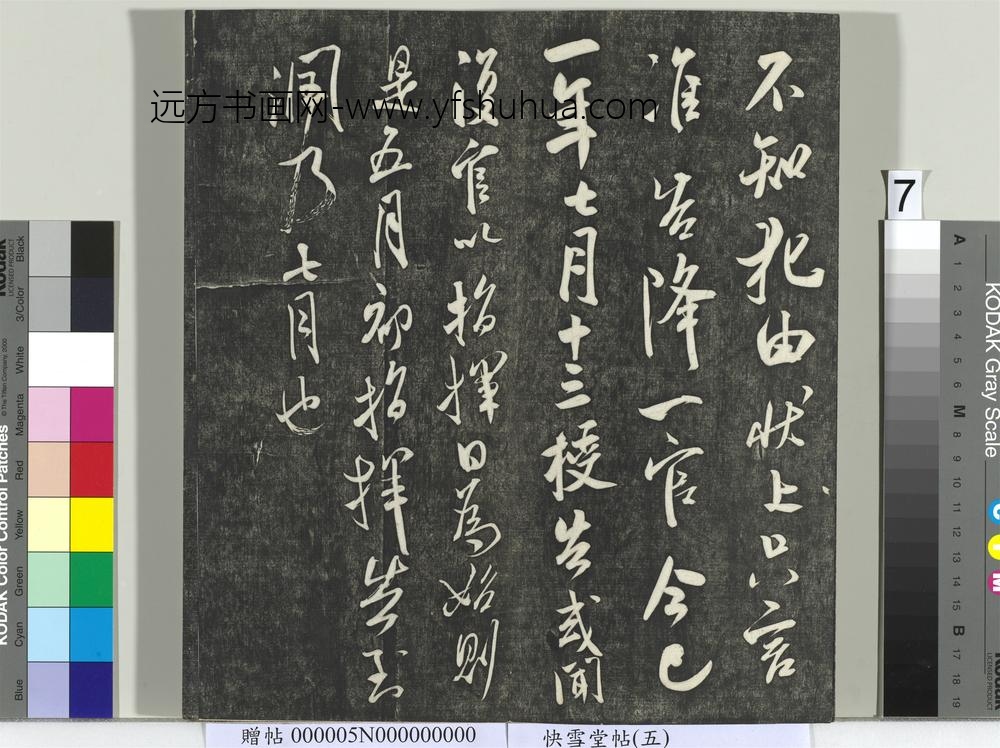 不知犯由状上只言
准告降一官今已
一年七月十三授告或闻
復官以指挥日為始则
是五月初指挥告到
润乃七月也
远方书画网-www.yfshuhua.com
7
贈帖 000005N000000000
快雪堂帖(五)
KODAK Color Control Patches
© The Tiffen Company, 2000
Blue
Cyan
Green
Yellow
Red
Magenta
White
3/Color
Black
KODAK Gray Scale
A
1
2
3
4
5
6
M
8
9
10
11
12
13
14
15
B
17
18
19
C
Y
M